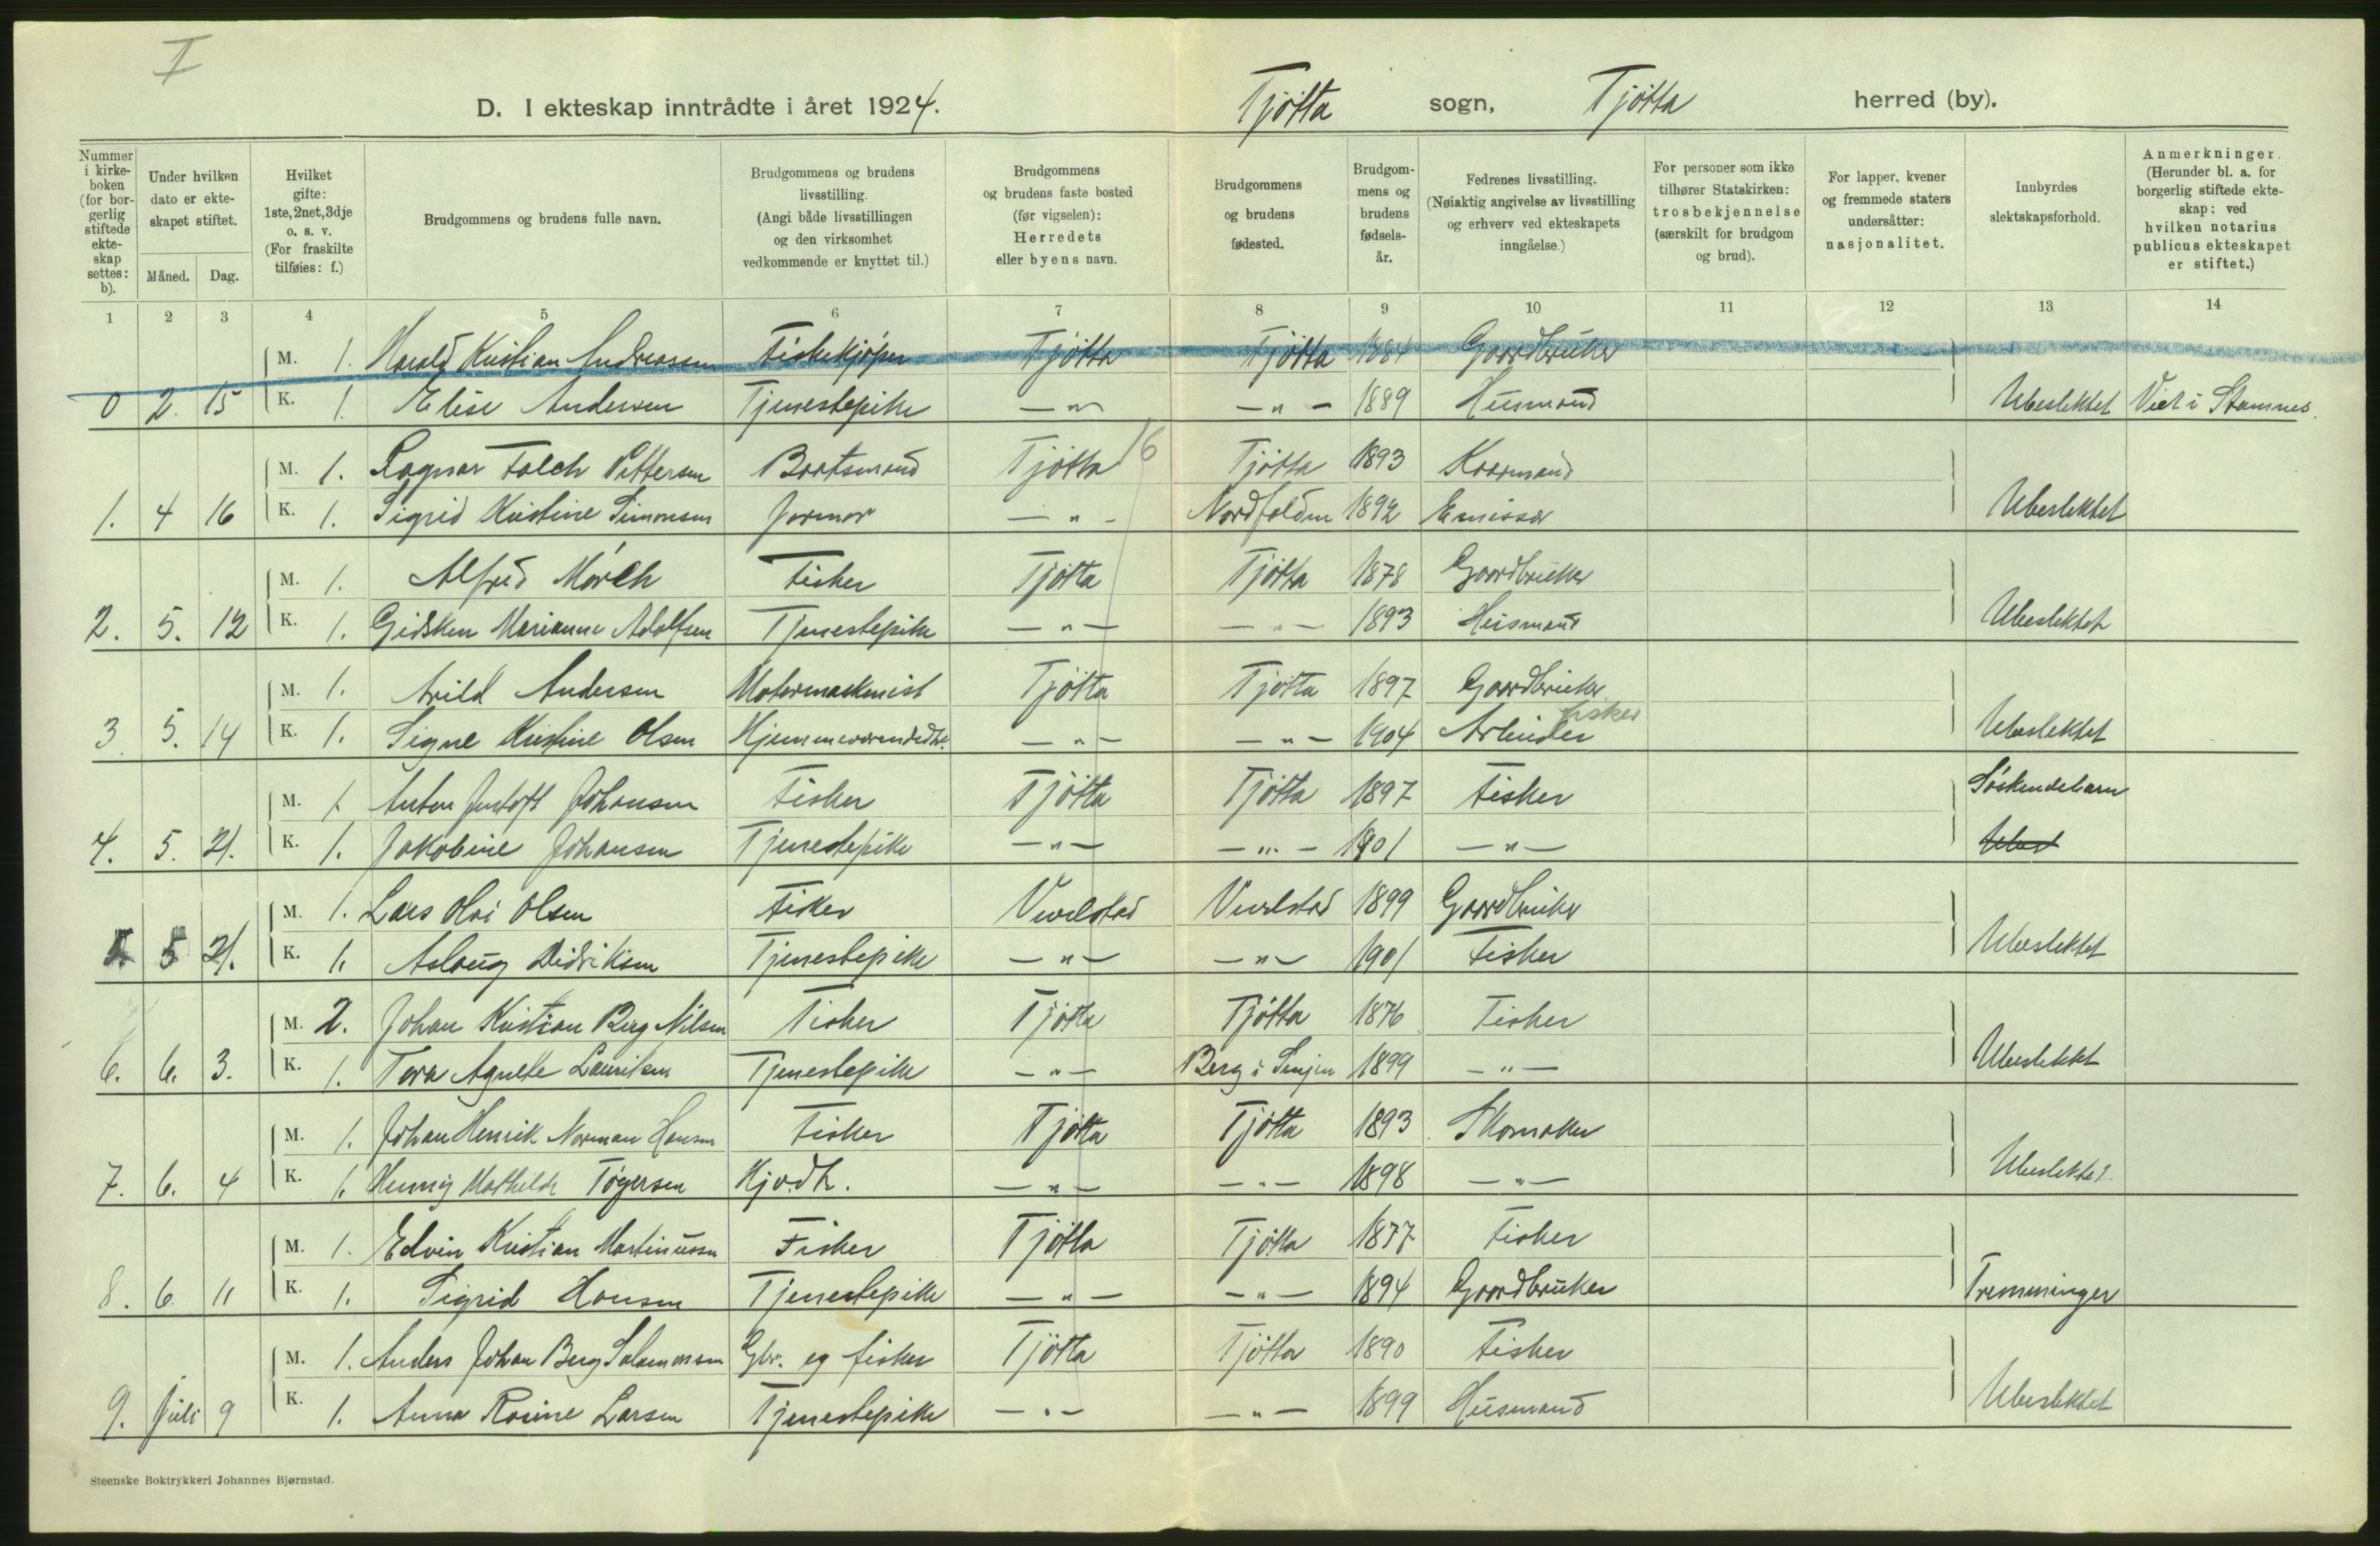 I
D. I ekteskap inntrådte i året 1924. Tjøtta sogn, Tjøtta herred (by).
Nummer i kirkeboken (for borgerlig stiftede ekteskap settes: b).
Under hvilken dato er ekteskapet stiftet.
Måned. Dag.
Hvilket gifte: 1ste, 2net, 3dje o. s. v. (For fraskilte tilføies: f.)
Brudgommens og brudens fulle navn.
Brudgommens og brudens livsstilling. (Angi både livsstillingen og den virksomhet vedkommende er knyttet til.)
Brudgommens og brudens faste bosted (før vigselen): Herredets eller byens navn.
Brudgommens og brudens fødested.
Brudgommens og brudens fødselsår.
Fedrenes livsstilling. (Nøiaktig angivelse av livsstilling og erhverv ved ekteskapets inngåelse.)
For personer som ikke tilhører Statskirken: trosbekjennelse (særskilt for brudgom og brud).
For lapper, kvener og fremmede staters undersåtter: nasjonalitet.
Innbyrdes slektskapsforhold.
Anmerkninger. (Herunder bl. a. for borgerlig stiftede ekteskap: ved hvilken notarius publicus ekteskapet er stiftet.)
1 2 3 4 5 6 7 8 9 10 11 12 13 14
M. 1. Harald Kristian Andreassen Fiskekjøper Tjøtta Tjøtta 1884 Gaardbruker
0 2. 15 K. 1. Elise Andersen Tjenestepike — " — — " — 1889 Husmand Ubeslektet Viet i Stamnes.
M. 1. Ragnar Falch Pettersen Baatsmand Tjøtta 16 Tjøtta 1893 Kaarmand
1. 4 16 K. 1. Sigrid Kristine Simonsen Jormor — " — Nordfolden 1892 Emissær Ubeslektet
M. 1. Alfred Mørch Fisker Tjøtta Tjøtta 1878 Gaardbruker
2. 5. 12 K. 1. Gidsken Marianne Adolfsen Tjenestepike — " — — " — 1893 Husmand Ubeslektet
M. 1. Arild Andersen Motormaskinist Tjøtta Tjøtta 1897 Gaardbruker
fisker
3 5. 14 K. 1. Signe Kristine Olsen Hjemmeværendedtr. — " — — " — 1904 Arbeider Ubeslektet
M. 1 Anton Johansen Fisker Tjøtta Tjøtta 1897 Fisker Søskendebarn
4. 5. 21. K. 1. Jakobine Johansen Tjenestepike — " — — " — 1901 — " — Ubes
M. 1. Lars Olai Olsen Fisker Vevelstad Vevelstad 1899 Gaardbruker
5. 5 21. K. 1. Aslaug Didriksen Tjenestepike — " — — " — 1901 Fisker Ubeslektet
M. 2. Johan Kristian Berg Nilsen Fisker Tjøtta Tjøtta 1876 Fisker
6. 6. 3. K. 1. Tora Agnete Lauritsen Tjenestepike — " — Berg i Senjen 1899 — " — Ubeslektet
M. 1. Johan Henrik Norman Hansen Fisker Tjøtta Tjøtta 1893 Skomaker
7. 6. 4 K. 1. Henny Mathilde Tøgersen Hjv.dtr. — " — — " — 1898 — " — Ubeslektet
M. 1. Edvin Kristian Martinussen Fisker Tjøtta Tjøtta 1877 Fisker
8. 6 11 K. 1. Sigrid Hansen Tjenestepike — " — — " — 1894 Gaardbruker Tremminger
M. 1. Anders Johan Berg Salamonsen Gbr. og fisker Tjøtta Tjøtta 1890 Fisker
9. Juli 9 K. 1. Anna Rosine Larsen Tjenestepike — " — — " — 1899 Husmand Ubeslektet
Steenske Boktrykkeri Johannes Bjørnstad.